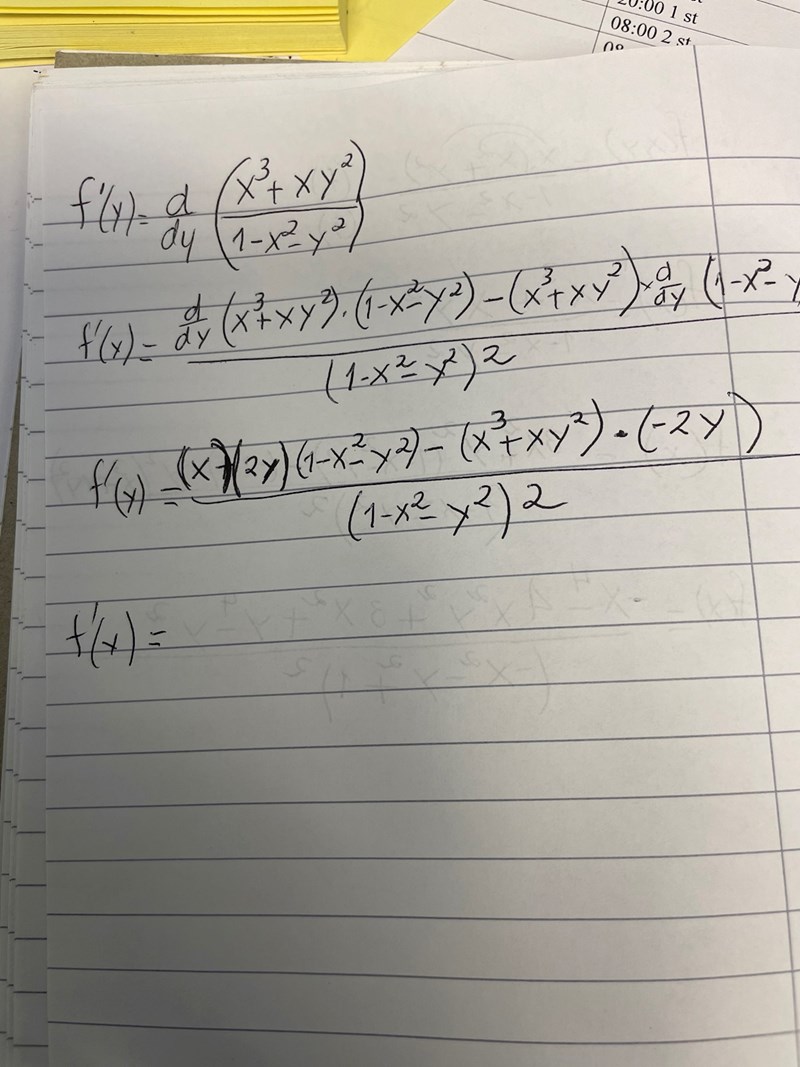 20:00 1 st
08:00 2 st
f'(y) = d/dy ((x³ + xy²)/(1-x²-y²))
f'(x) = (d/dy (x³+xy²)·(1-x²-y²) - (x³+xy²)× d/dy (1-x²-y)/(1-x²-y²)2
f'(y) = ((x)(2y)(1-x²-y²) - (x³+xy²)·(-2y))/(1-x²-y²)2
f'(x) =